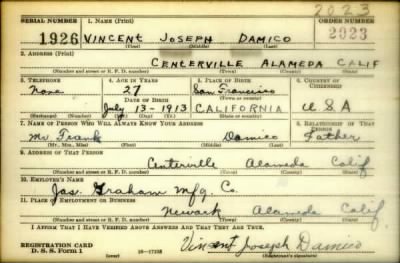 2023
SERIAL NUMBER 1. NAME (Print) ORDER NUMBER
1926 VINCENT JOSEPH DAMICO 2023
(First) (Middle) (Last)
2. ADDRESS (Print)
CENTERVILLE ALAMEDA CALIF
(Number and street or R. F. D. number) (Town) (County) (State)
3. TELEPHONE 4. AGE IN YEARS 5. PLACE OF BIRTH 6. COUNTRY OF CITIZENSHIP
None 27 San Francisco
DATE OF BIRTH (Town or county)
July 13-1913 CALIFORNIA U S A
(Exchange) (Number) (Mo.) (Day) (Yr.) (State or country)
7. NAME OF PERSON WHO WILL ALWAYS KNOW YOUR ADDRESS 8. RELATIONSHIP OF THAT PERSON
Mr. Frank Damico Father
(Mr., Mrs., Miss) (First) (Middle) (Last)
9. ADDRESS OF THAT PERSON
Centerville Alameda Calif
(Number and street or R. F. D. number) (Town) (County) (State)
10. EMPLOYER'S NAME
Jas. Graham Mfg. Co.
11. PLACE OF EMPLOYMENT OR BUSINESS
Newark Alameda Calif
(Number and street or R. F. D. number) (Town) (County) (State)
I AFFIRM THAT I HAVE VERIFIED ABOVE ANSWERS AND THAT THEY ARE TRUE.
REGISTRATION CARD
D. S. S. Form 1 (over) 16-17105 Vincent Joseph Damico
(Registrant's signature)